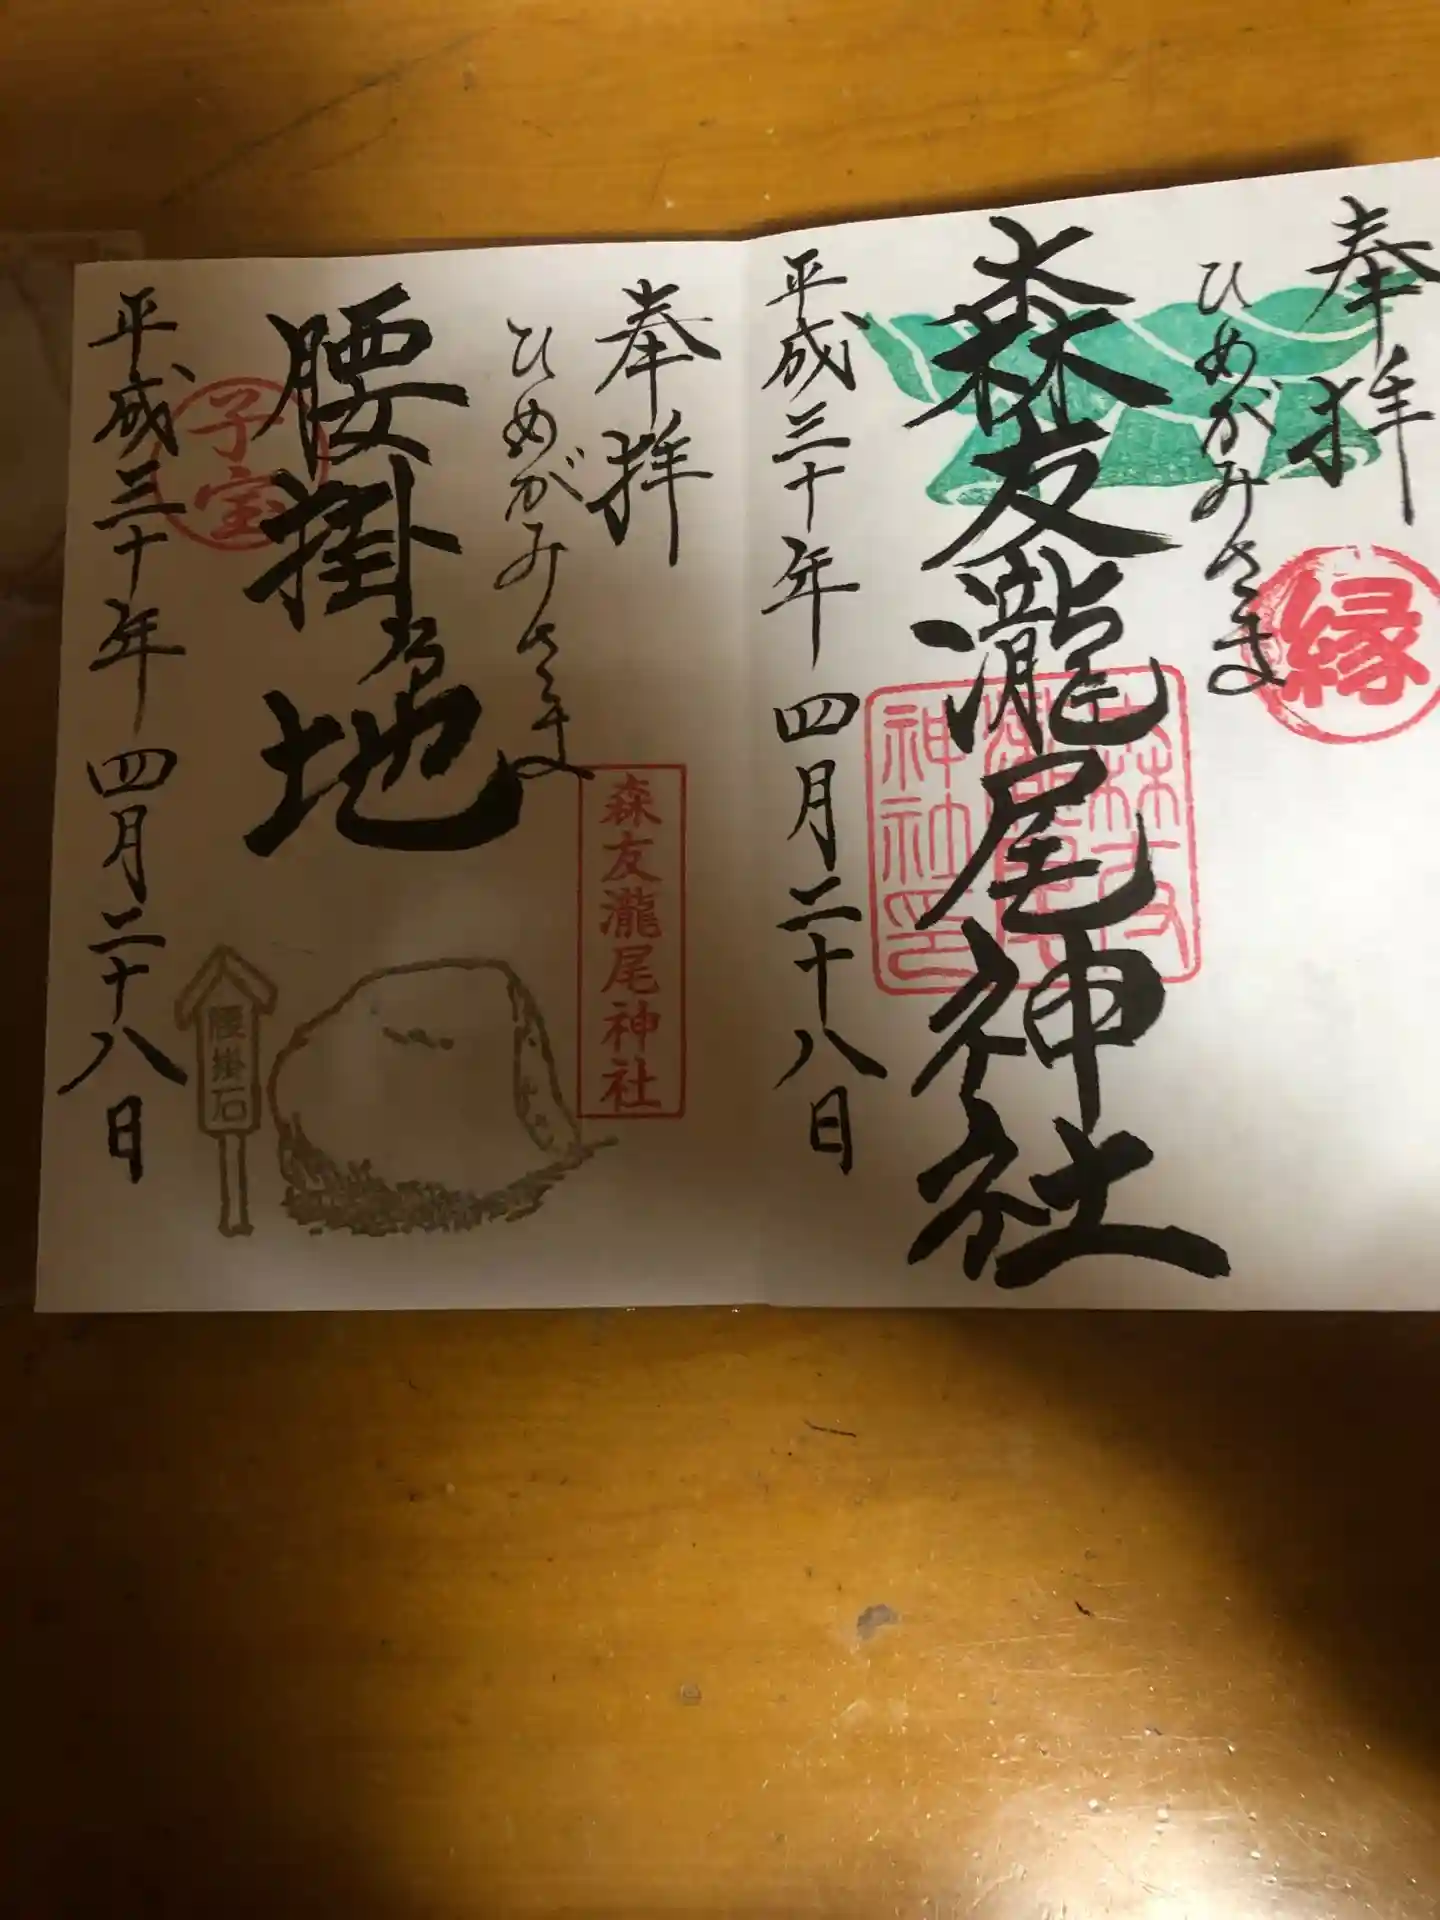 奉拝
ひめがみさま
縁
森友瀧尾神社
森友瀧尾神社印
平成三十年 四月二十八日
奉拝
ひめがみさま
森友瀧尾神社
腰掛乃地
子宝
平成三十年 四月二十八日
腰掛石